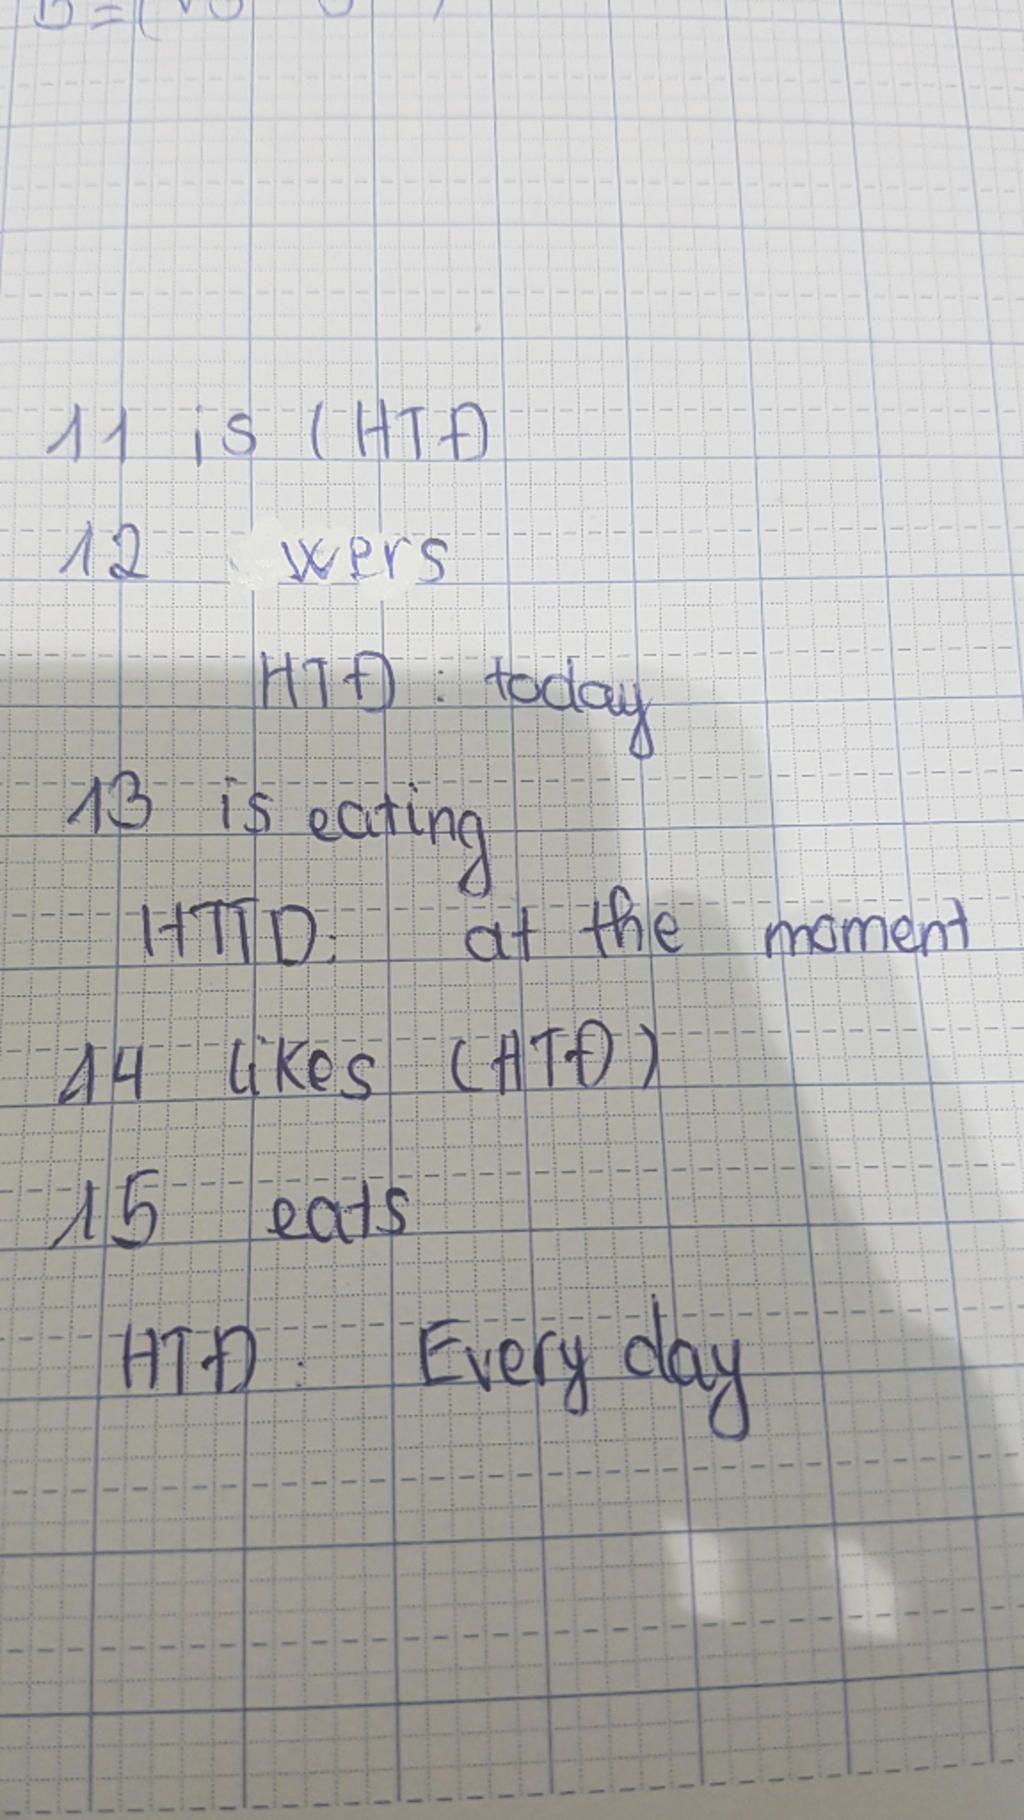 11 is (HTĐ)
12 wers
HTĐ: today
13 is eating
HTTD: at the moment
14 likes (HTĐ)
15 eats
HTĐ: Every day